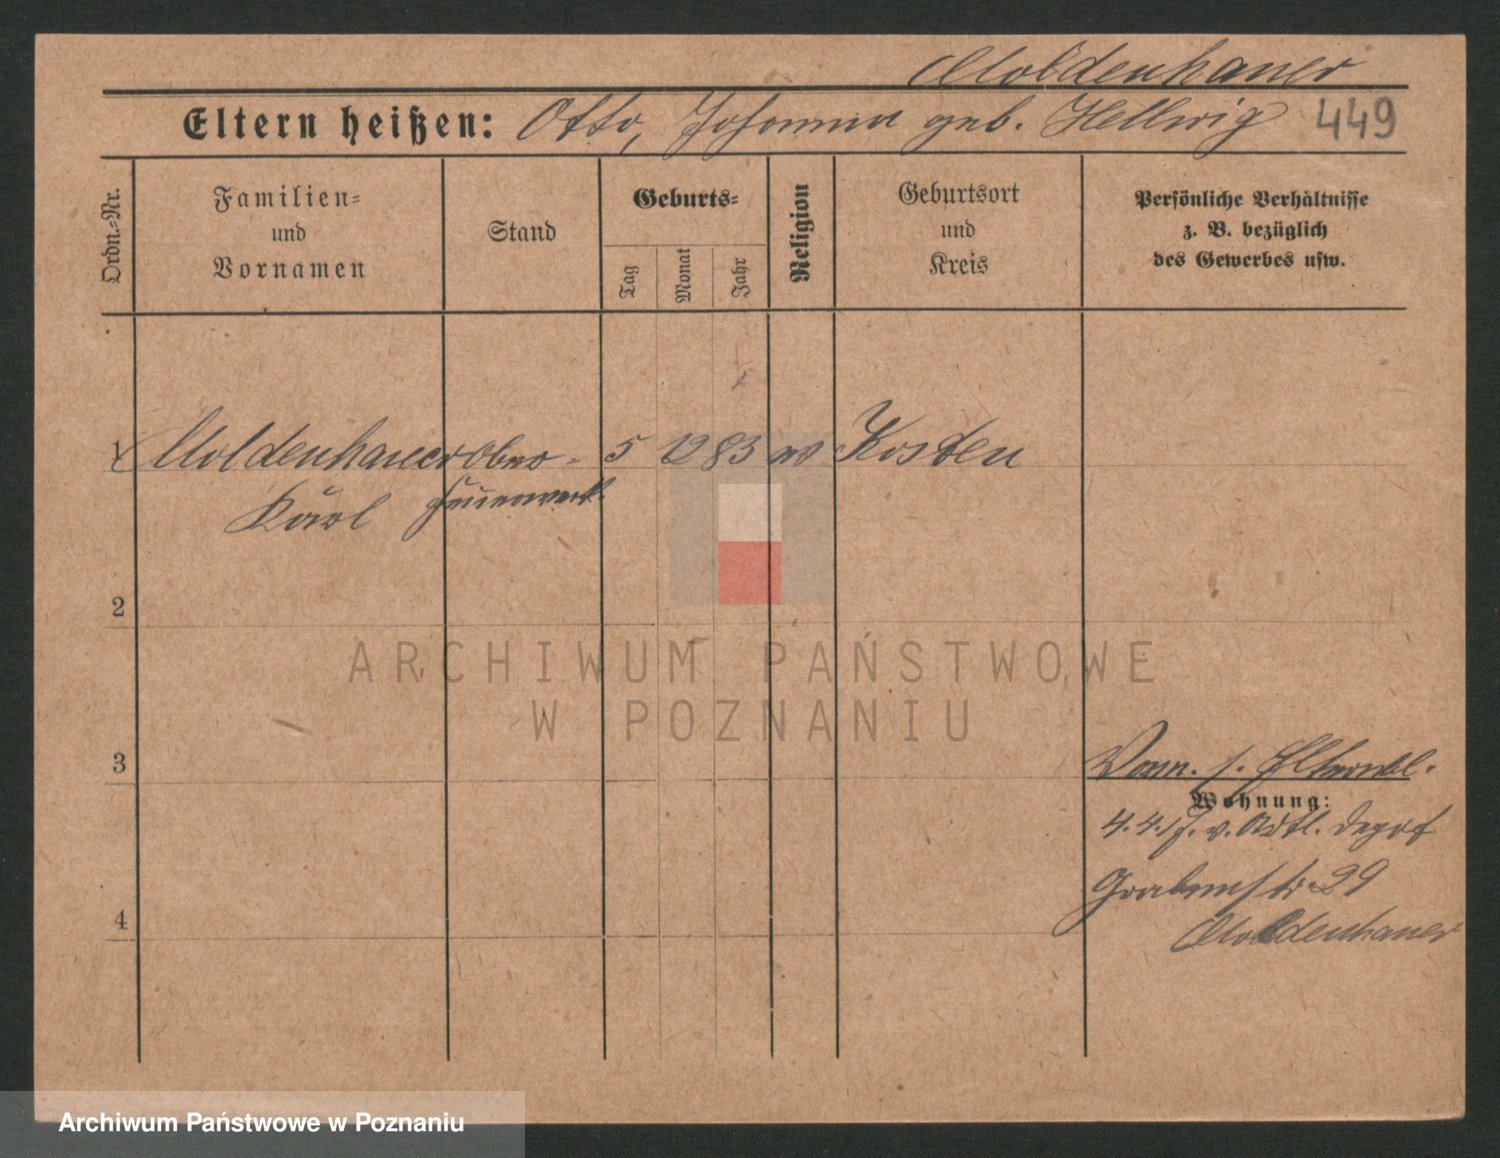 Moldenhauer
Eltern heißen: Otto, Johanna geb. Hellwig 449
Ordn.-Nr.
Familien-
und
Vornamen
Stand
Geburts-
Tag
Monat
Jahr
Religion
Geburtsort
und
Kreis
Persönliche Verhältnisse
z. B. bezüglich
des Gewerbes usw.
1 Moldenhauer Ober- 5 12 83 ev Kosten
Karl Feuerwerk.
2
ARCHIWUM PAŃSTWOWE
W POZNANIU
3
Wohnung:
4.4. v. Depot
Grabenstr. 29
4
Moldenhauer
Archiwum Państwowe w Poznaniu